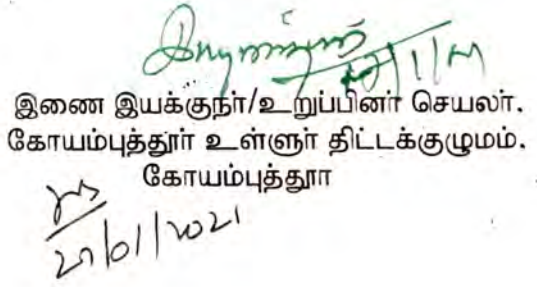 இணை இயக்குநர்/உறுப்பினர் செயலர்.
கோயம்புத்தூர் உள்ளுர் திட்டக்குழுமம்.
கோயம்புத்தூா
27/01/2021